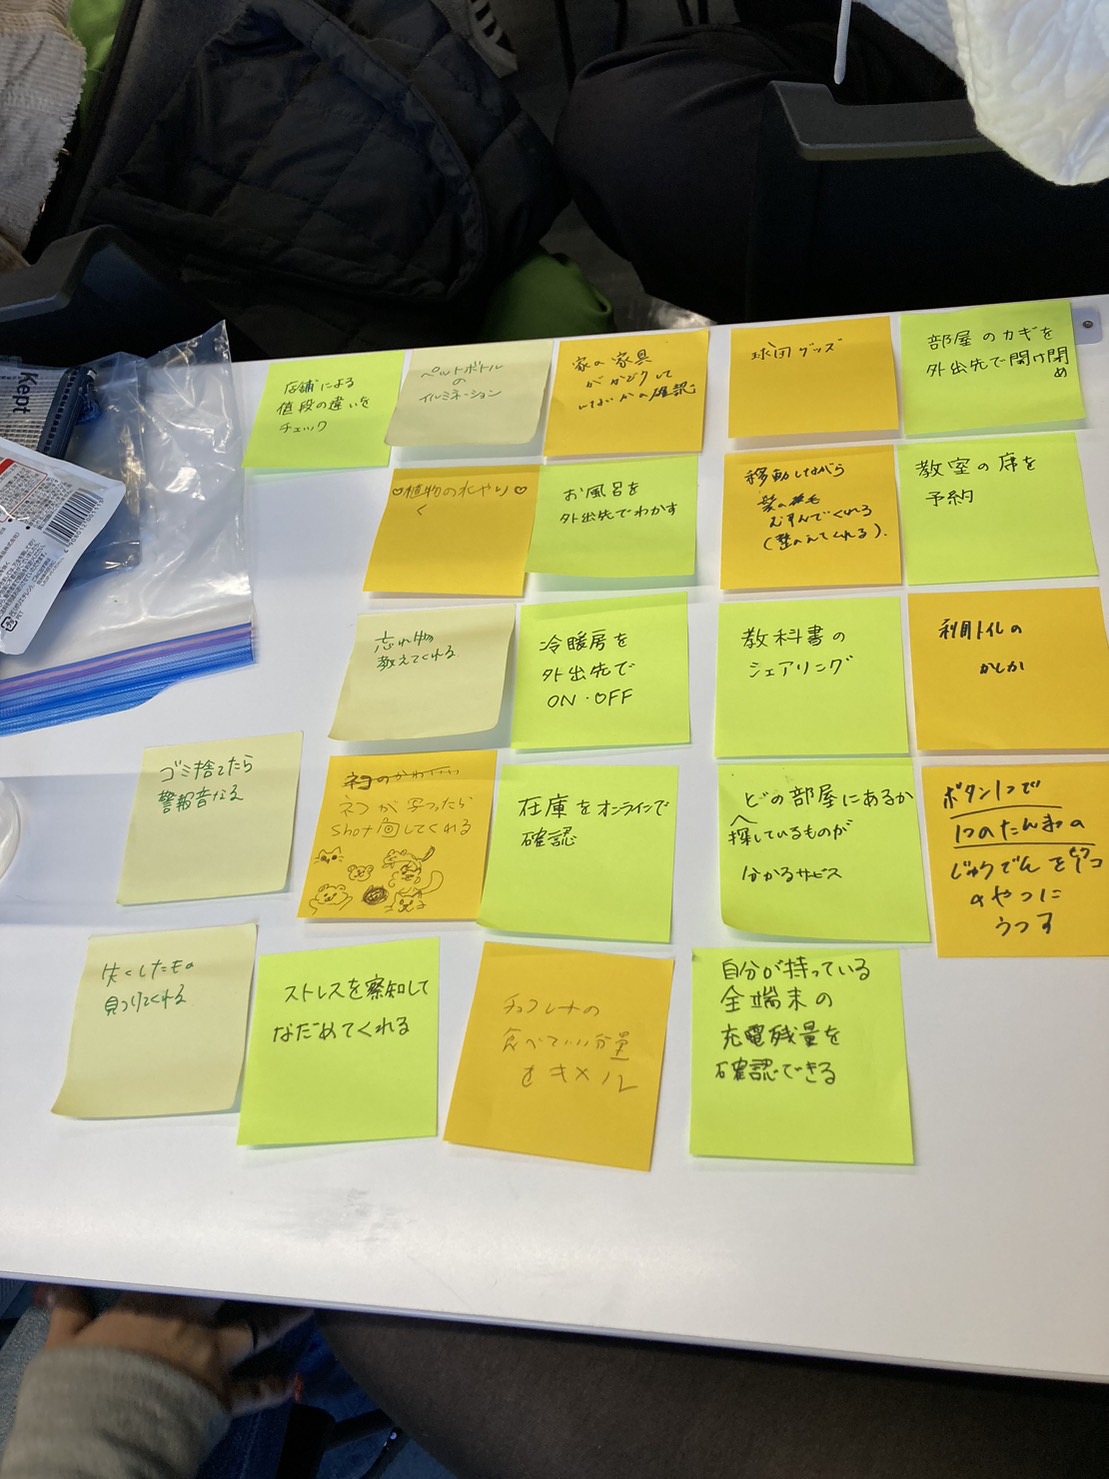 店舗による
値段の違いを
チェック
ペットボトル
の
イルミネーション
家の家具
がカビクして
しないかの確認
球団グッズ
部屋のカギを
外出先で開け閉
め
♡植物の水やり♡
く
お風呂を
外出先でわかす
移動しながら
髪の毛
むすんでくれる
(整のえてくれる).
教室の席を
予約
忘れ物
教えてくれる
冷暖房を
外出先で
ON・OFF
教科書の
シェアリング
利用トイレの
かしか
ゴミ捨てたら
警報音なる
ネコが写ったら
shot画してくれる
在庫をオンラインで
確認
どの部屋にあるか
探しているものが
分かるサービス
ボタン1つで
1つのたんまつの
じゅうでんをべつ
のやつに
うつす
失くしたもの
見つけてくれる
ストレスを察知して
なだめてくれる
チョコレートの
食べていい分量
をキメル
自分が持っている
全端末の
充電残量を
確認できる
Kept